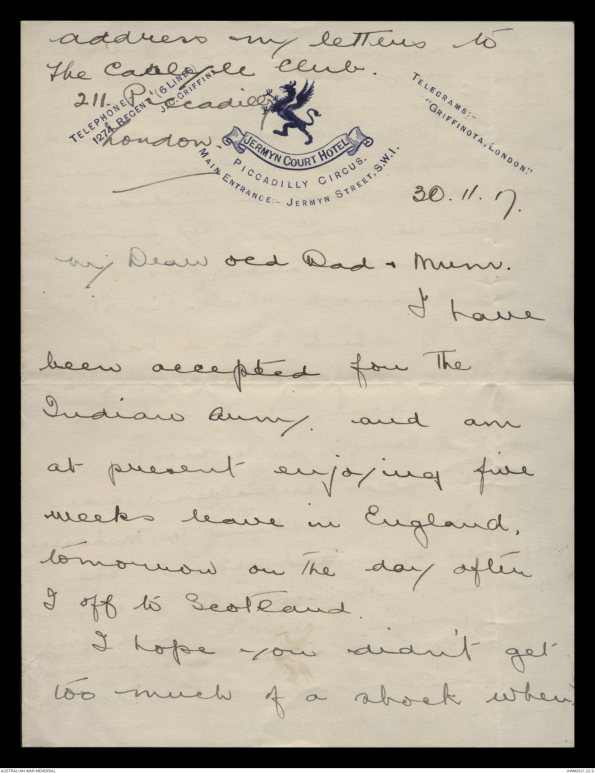 address my letters to
The Carlyle Club.
211. Piccadilly
London.
TELEPHONE
1274 REGENT (6 LINES)
J.C. GRIFFIN
TELEGRAMS:-
"GRIFFINOTA, LONDON."
JERMYN COURT HOTEL
PICCADILLY CIRCUS.
MAIN ENTRANCE:- JERMYN STREET, S.W.1.
30.11.17.
My Dear old Dad & Mum.
I have
been accepted for The
Indian Army. and am
at present enjoying five
weeks leave in England,
tomorrow or the day after
I off to Scotland.
I hope you didn't get
too much of a shock when
AUSTRALIAN WAR MEMORIAL